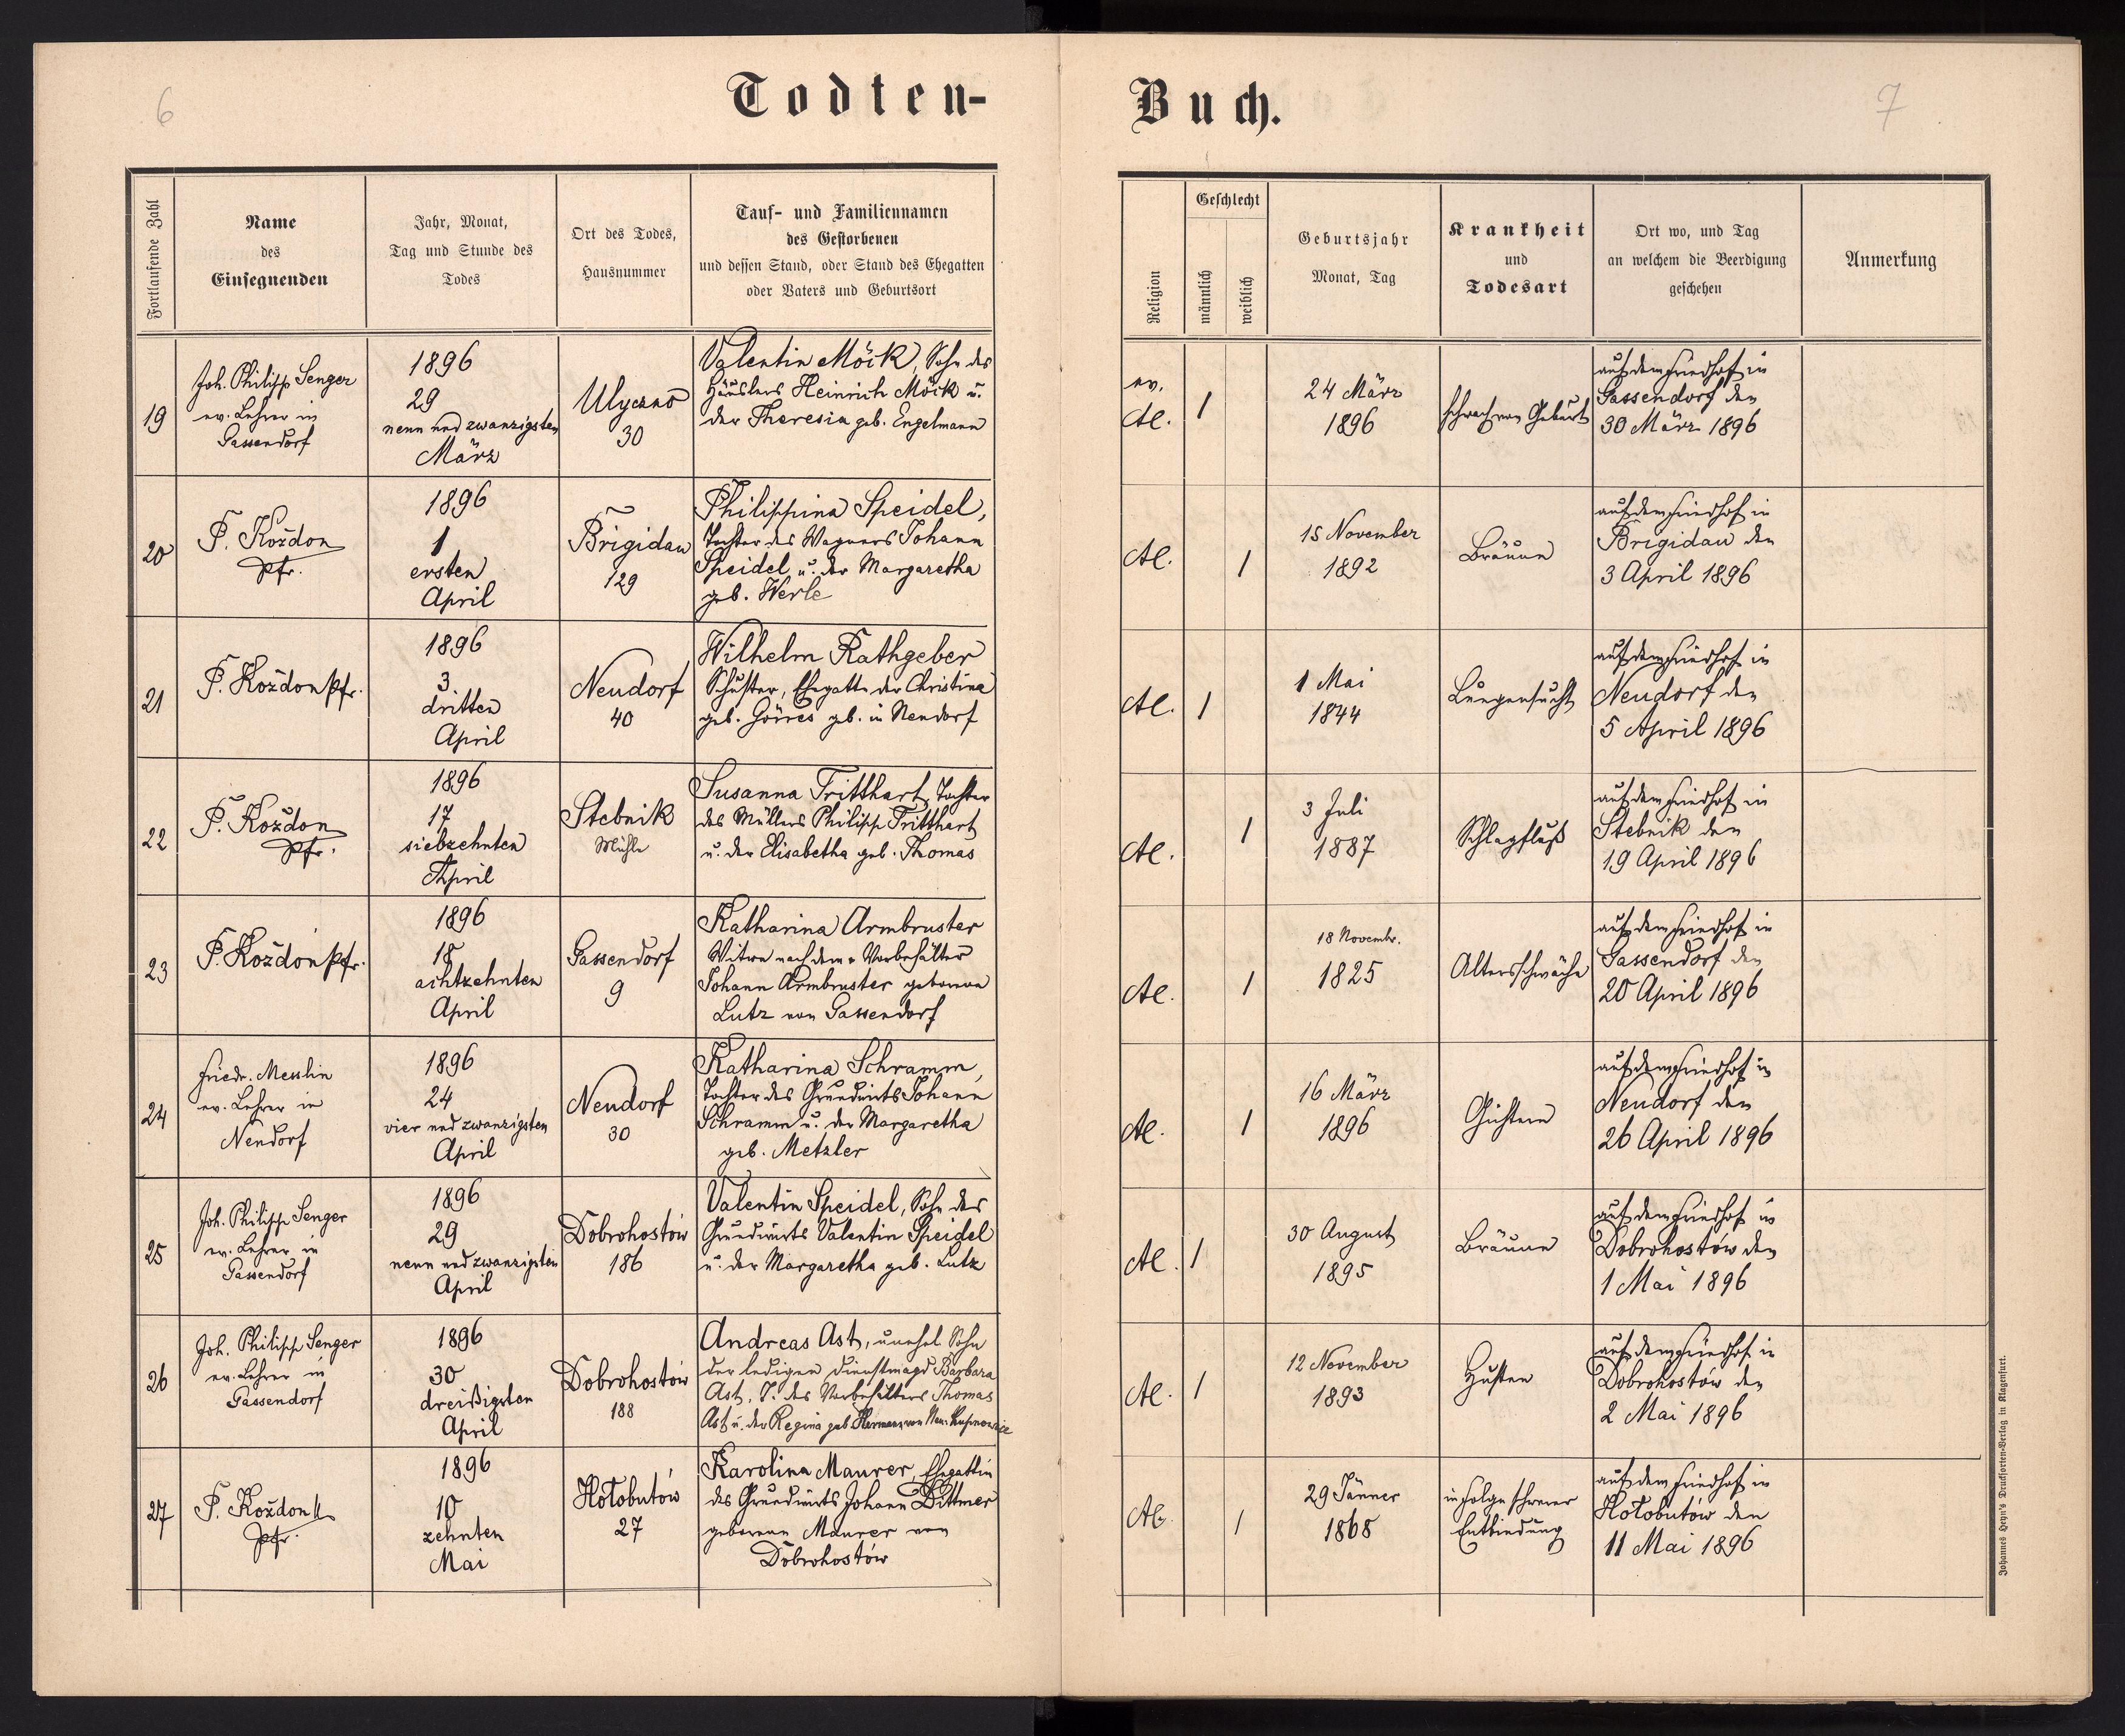 6
Todten-
Buch.
7
Fortlaufende Zahl
Name
des
Einsegnenden
Jahr, Monat,
Tag und Stunde des
Todes
Ort des Todes,
Hausnummer
Tauf- und Familiennamen
des Gestorbenen
und dessen Stand, oder Stand des Ehegatten
oder Vaters und Geburtsort
Religion
Geschlecht
männlich
weiblich
Geburtsjahr
Monat, Tag
Krankheit
und
Todesart
Ort wo, und Tag
an welchem die Beerdigung
geschehen
Anmerkung
19
Joh. Philipp Senger
ev. Lehrer in
Gassendorf
1896
29
neun und zwanzigsten
März
Ulyczno
30
Valentin Möck, Sohn des
Häuslers Heinrich Möck u.
der Theresia geb. Engelmann
ev.
AC.
1
24 März
1896
schwach von Geburt
auf dem Friedhof in
Gassendorf den
30 März 1896
20
P. Kozdon
Pfr.
1896
1
ersten
April
Brigidau
129
Philippina Speidel,
Tochter des Wagners Johann
Speidel u. der Margaretha
geb. Werle
AC.
1
15 November
1892
Bräune
auf dem Friedhof in
Brigidau den
3 April 1896
21
P. Kozdon Pfr.
1896
3
dritten
April
Neudorf
40
Wilhelm Rathgeber
Schuster, Ehegatte der Christina
geb. Görres geb. in Neudorf
AC.
1
1 Mai
1844
Lungensucht
auf dem Friedhof in
Neudorf den
5 April 1896
22
P. Kozdon
Pfr.
1896
17
siebzehnten
April
Stebnik
Mühle
Susanna Tritthart, Tochter
des Müllers Philipp Tritthart
u. der Elisabetha geb. Thomas
AC.
1
3 Juli
1887
Schlagfluß
auf dem Friedhof in
Stebnik den
19 April 1896
23
P. Kozdon Pfr.
1896
18
achtzehnten
April
Gassendorf
9
Katharina Armbruster
Witwe nach dem Vorbehälter
Johann Armbruster geborene
Lutz von Gassendorf
AC.
1
18 Novembr.
1825
Altersschwäche
auf dem Friedhof in
Gassendorf den
20 April 1896
24
Friedr. Messlin
ev. Lehrer in
Neudorf
1896
24
vier und zwanzigsten
April
Neudorf
30
Katharina Schramm,
Tochter des Grundwirts Johann
Schramm u. der Margaretha
geb. Metzler
AC.
1
16 März
1896
Gichtern
auf dem Friedhof in
Neudorf den
26 April 1896
25
Joh. Philipp Senger
ev. Lehrer in
Gassendorf
1896
29
neun und zwanzigsten
April
Dobrohostów
186
Valentin Speidel, Sohn des
Grundwirts Valentin Speidel
u. der Margaretha geb. Lutz
AC.
1
30 August
1895
Bräune
auf dem Friedhof in
Dobrohostów den
1 Mai 1896
26
Joh. Philipp Senger
ev. Lehrer in
Gassendorf
1896
30
dreißigsten
April
Dobrohostów
188
Andreas Ast, unehel Sohn
der ledigen Dienstmagd Barbara
Ast, T. des Vorbehälters Thomas
Ast u. der Regina geb. Hermann von Neu
AC.
1
12 November
1893
Husten
auf dem Friedhof in
Dobrohostów den
2 Mai 1896
27
P. Kozdon
Pfr.
1896
10
zehnten
Mai
Hołobutów
27
Karolina Maurer, Ehegattin
des Grundwirts Johann Dittmer
geborene Maurer von
Dobrohostów
AC.
1
29 Jänner
1868
in Folge schwerer
Entbindung
auf dem Friedhof in
Hołobutów den
11 Mai 1896
Johannes Heyn's Drucksorten-Verlag in Klagenfurt.